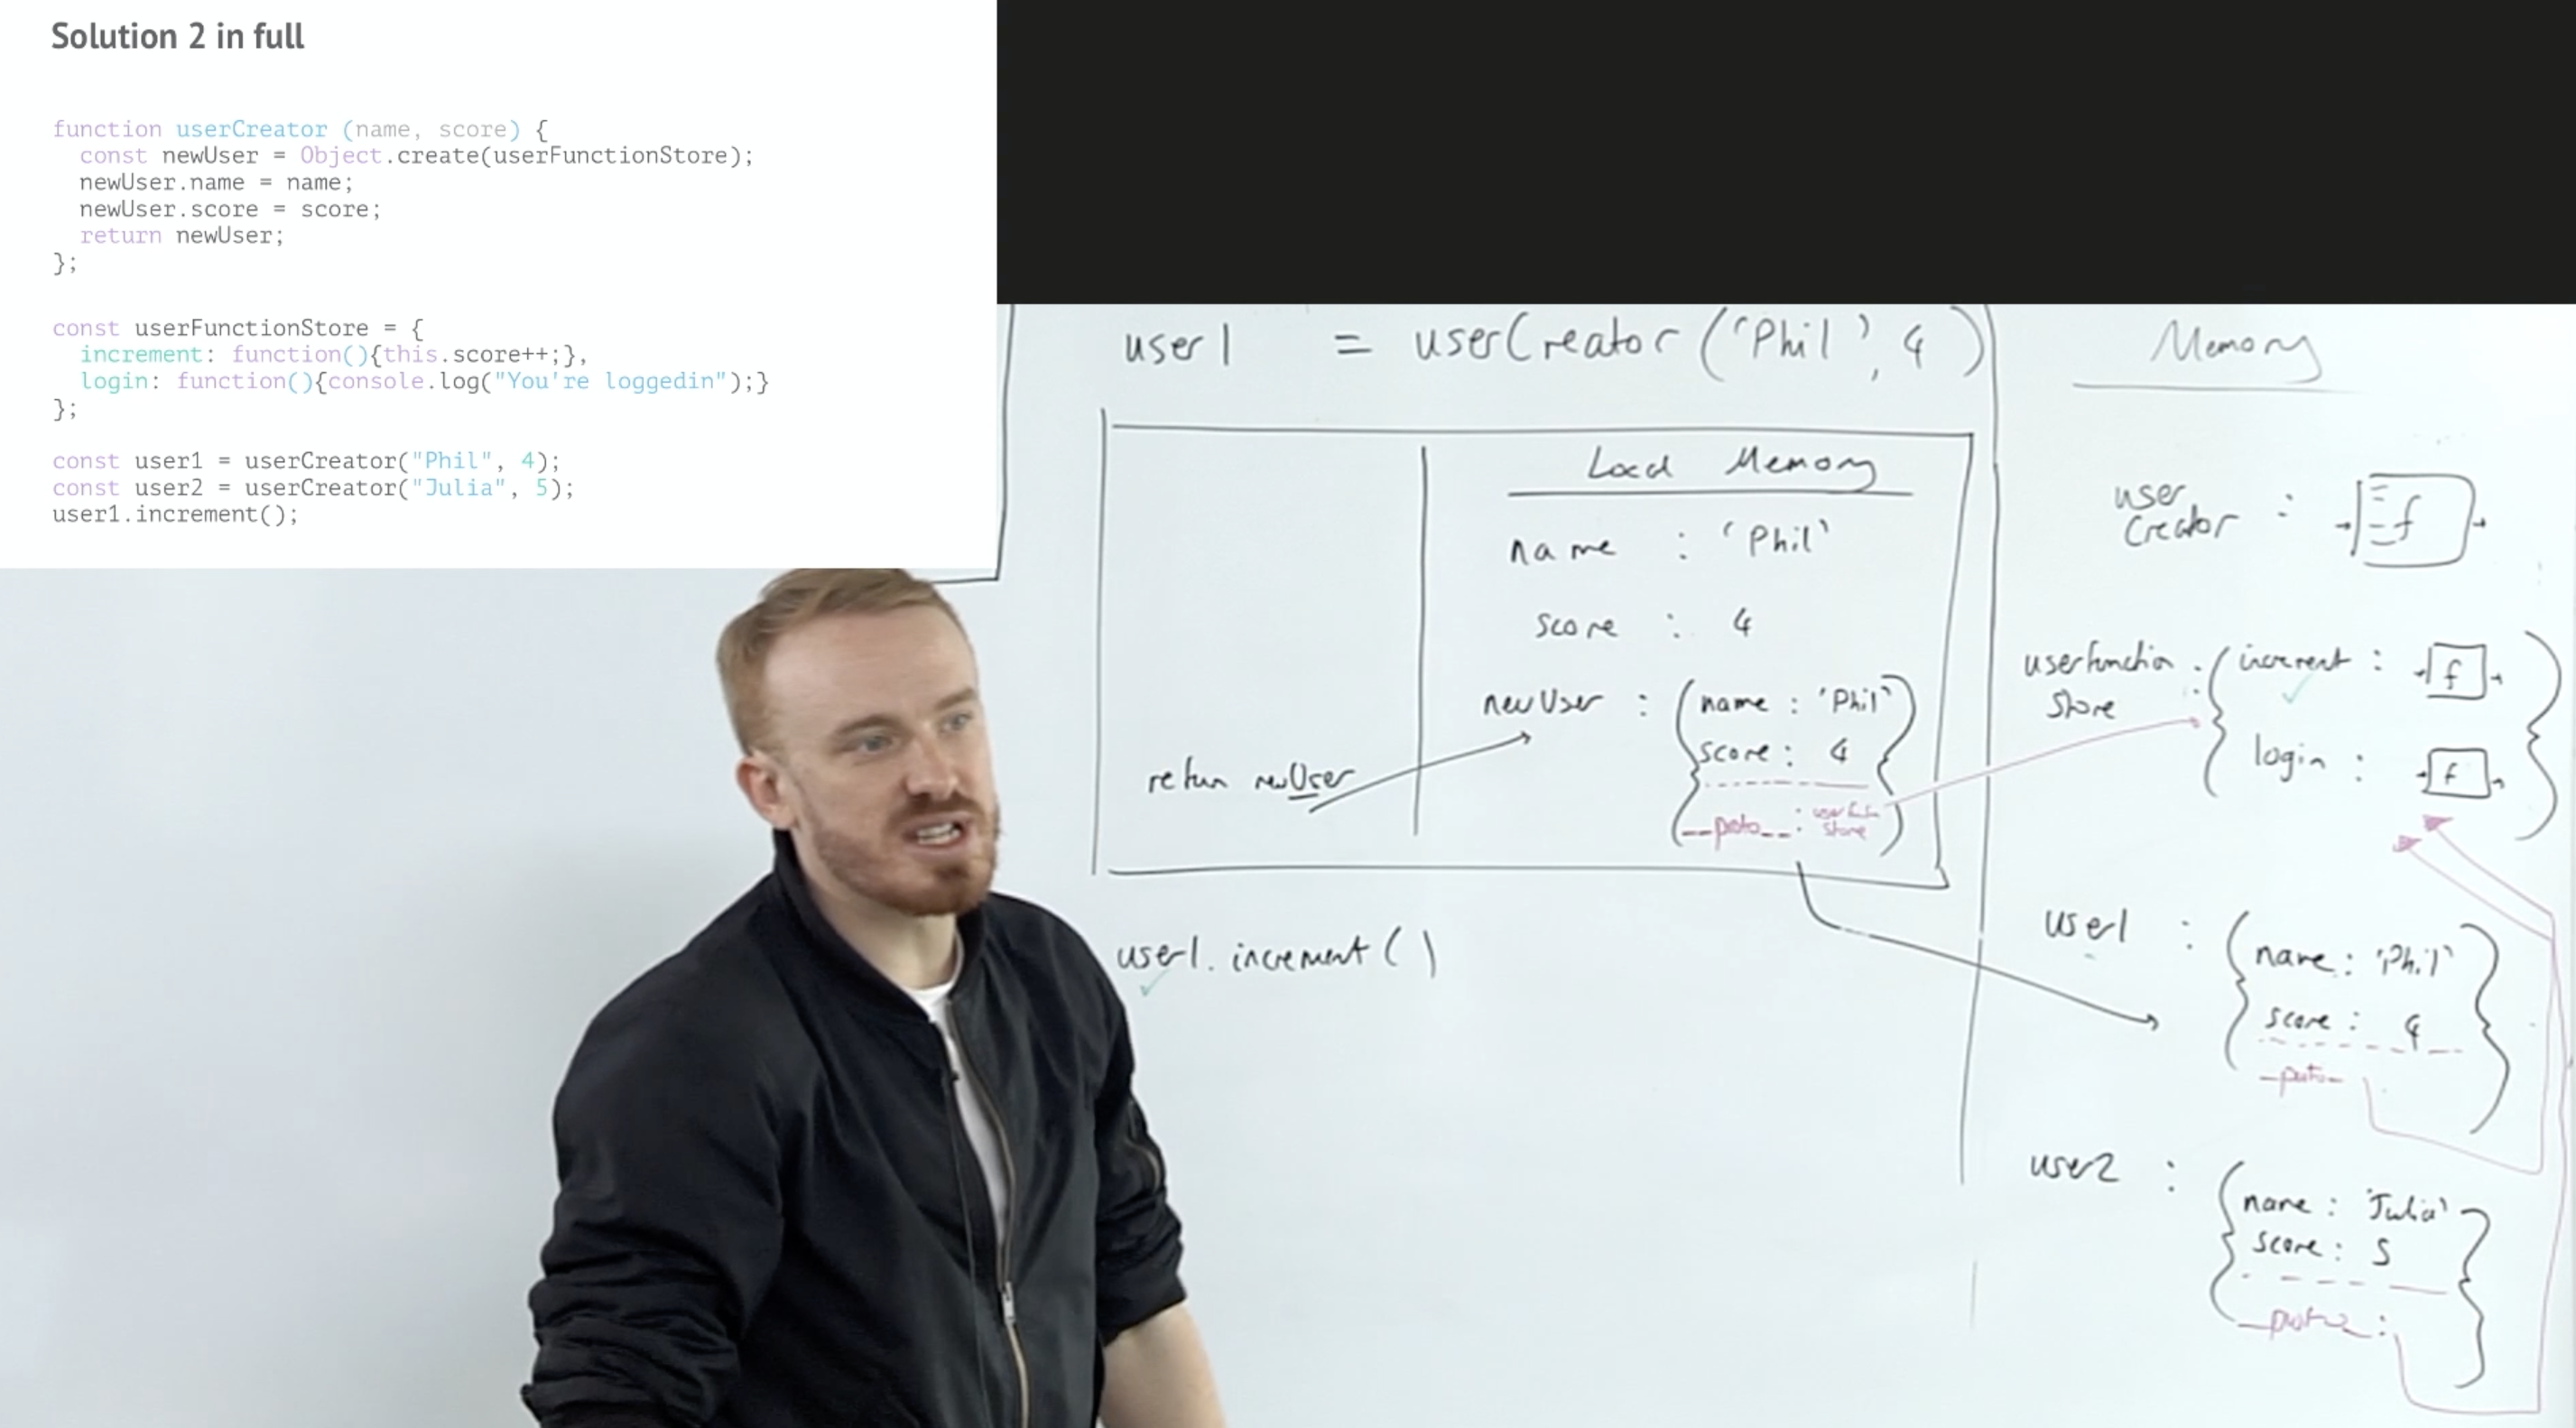 Solution 2 in full
function userCreator (name, score) {
const newUser = Object.create(userFunctionStore);
newUser.name = name;
newUser.score = score;
return newUser;
};
const userFunctionStore = {
increment: function(){this.score++;},
login: function(){console.log("You're loggedin");}
};
const user1 = userCreator("Phil", 4);
const user2 = userCreator("Julia", 5);
user1.increment();
user1 = userCreator('Phil', 4)
Local Memory
name : 'Phil'
score : 4
newUser : {name : 'Phil'
score : 4
return newUser
__proto__ :
store}
user1.increment()
Memory
user
Creator : f
userfunction : {increment : f
Store
login : f}
user1 : {name : 'Phil'
score : 4
__proto__}
user2 : {name : 'Julia'
score : 5
__proto__ :}